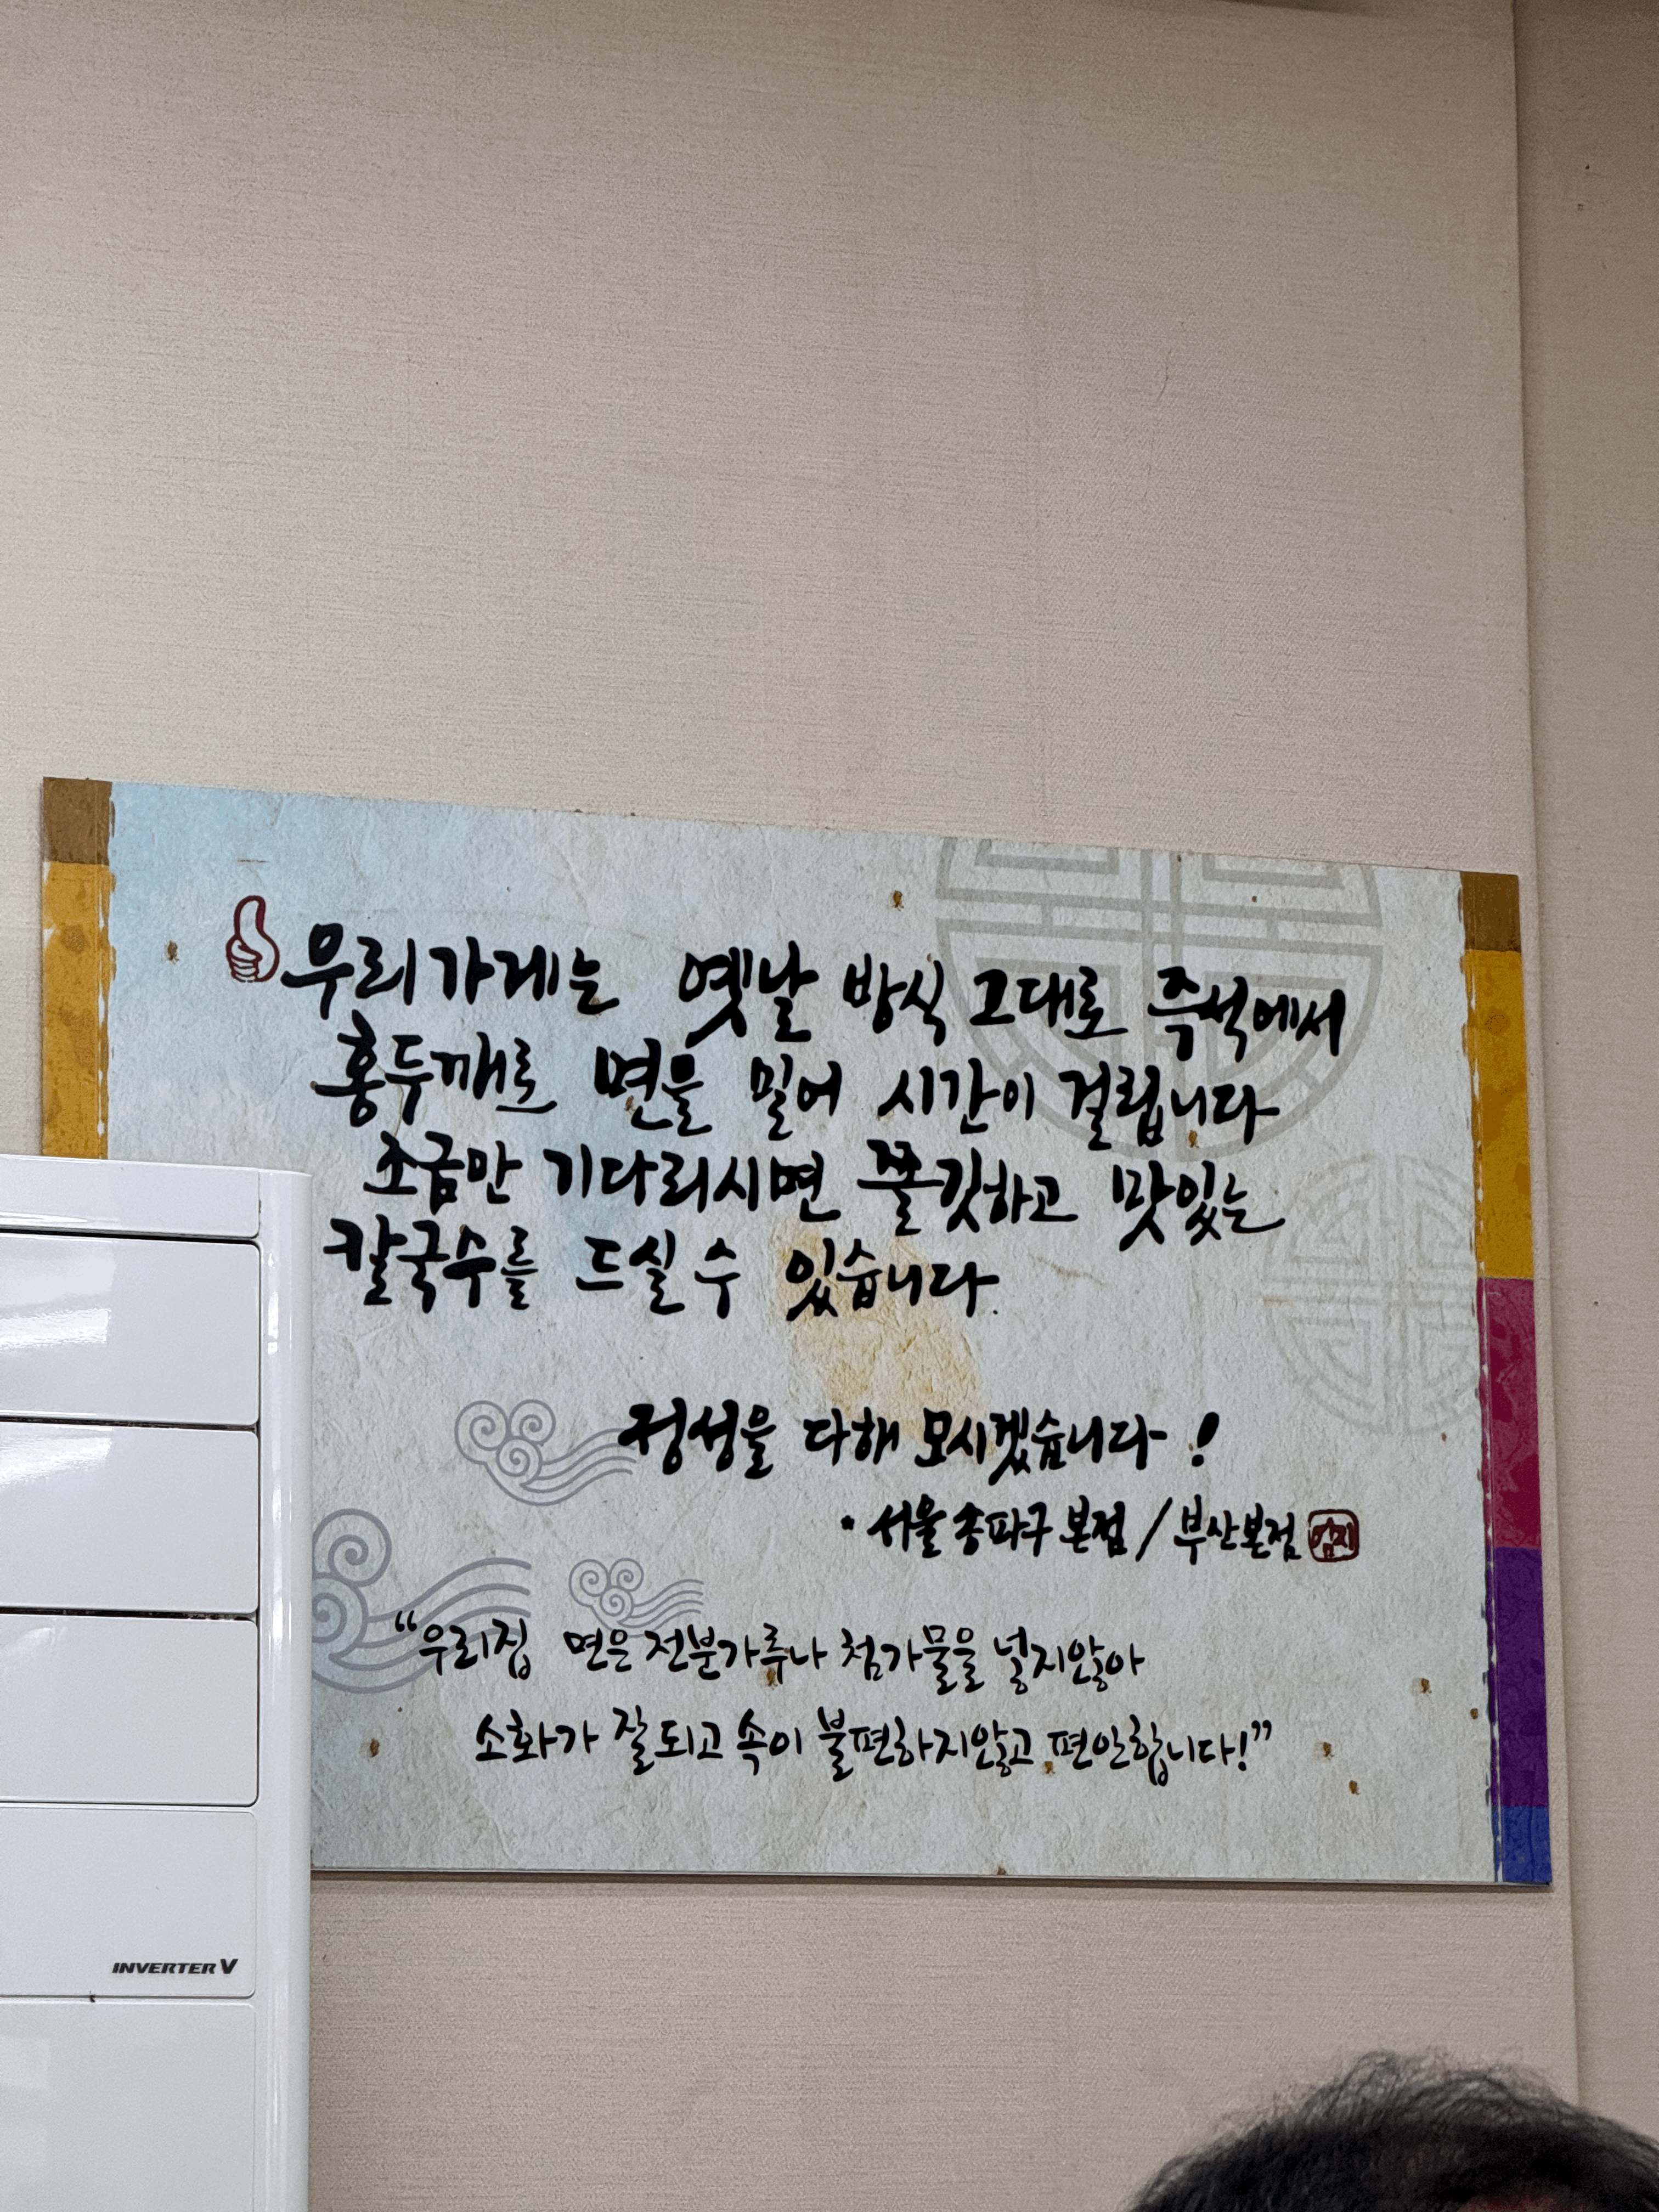 우리가게는 옛날 방식 그대로 즉석에서
홍두깨로 면을 밀어 시간이 걸립니다
조금만 기다리시면 쫄깃하고 맛있는
칼국수를 드실 수 있습니다.
정성을 다해 모시겠습니다!
· 서울 송파구 본점 / 부산본점
"우리집 면은 전분가루나 첨가물을 넣지않아
소화가 잘되고 속이 불편하지않고 편안합니다!"
INVERTER V